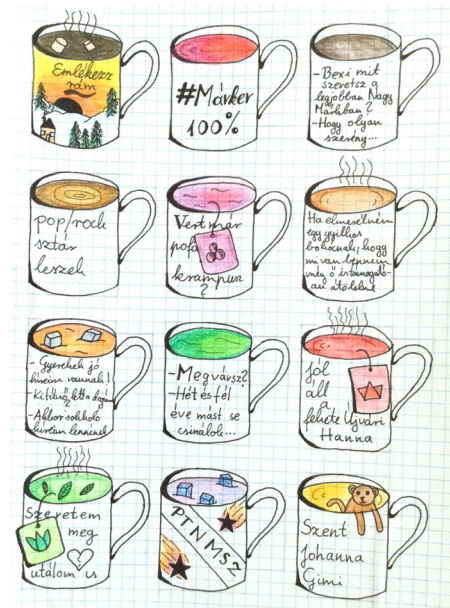 Emlékezz
rám
#Márker
100%
-Bexi mit
szeretsz a
legjobban Nagy
Márkban?
-Hogy olyan
szerény...
pop/rock
sztár
leszek
Vert már
pofá
krampusz
?
Ha elmesélném
egy gyilkos
bohócnak, hogy
mi van bennem
még ő is
átölelne
-Gyerekek jó
híreim vannak!
-Kitűnő lett a dogám?
-Akkor sokkoló
híreim lennének
-Megvársz?
-Hét és fél
éve mást se
csinálok...
jól
áll
a
fekete Újvári
Hanna
Szeretem
meg
utálom is
PTNMSZ
Szent
Johanna
Gimi